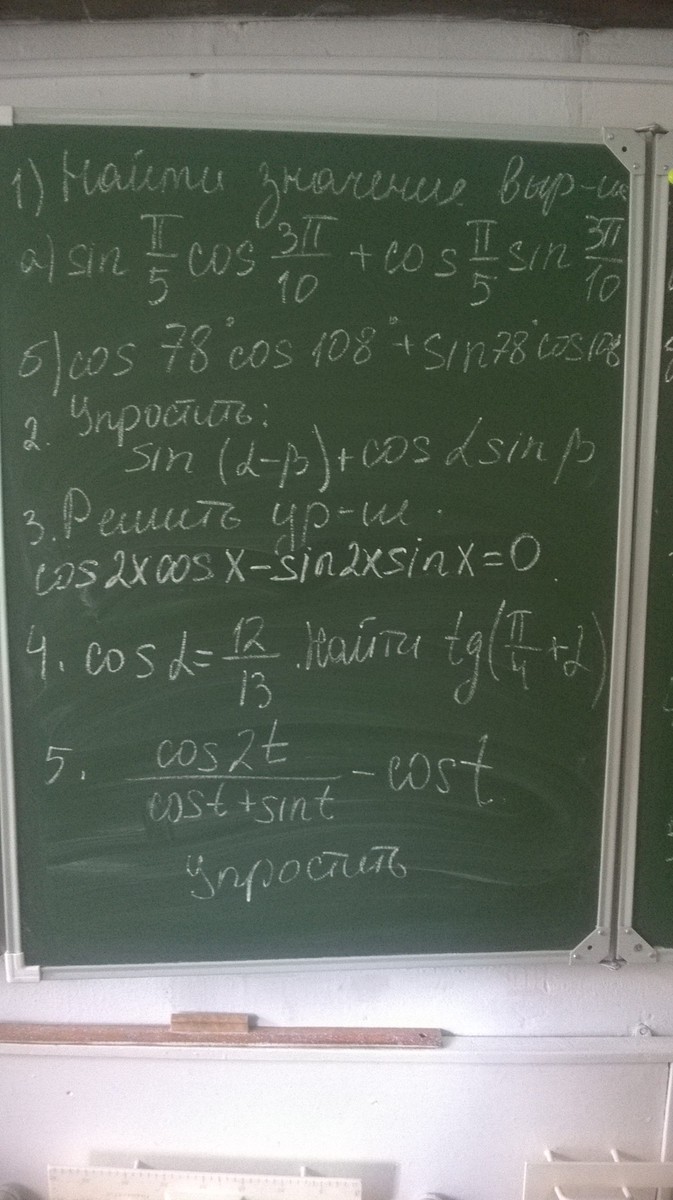 1) Найти значение выр-ия
а) sin π/5 cos 3π/10 + cos π/5 sin 3π/10
б) cos 78° cos 108° + sin 78° cos 108
2. Упростить:
sin (α-β)+cos α sin β
3. Решить ур-ие.
cos 2x cos x - sin 2x sin x = 0
4. cos α = 12/13. Найти tg(π/4 + α)
5. cos 2t / cos t + sin t - cos t
упростить